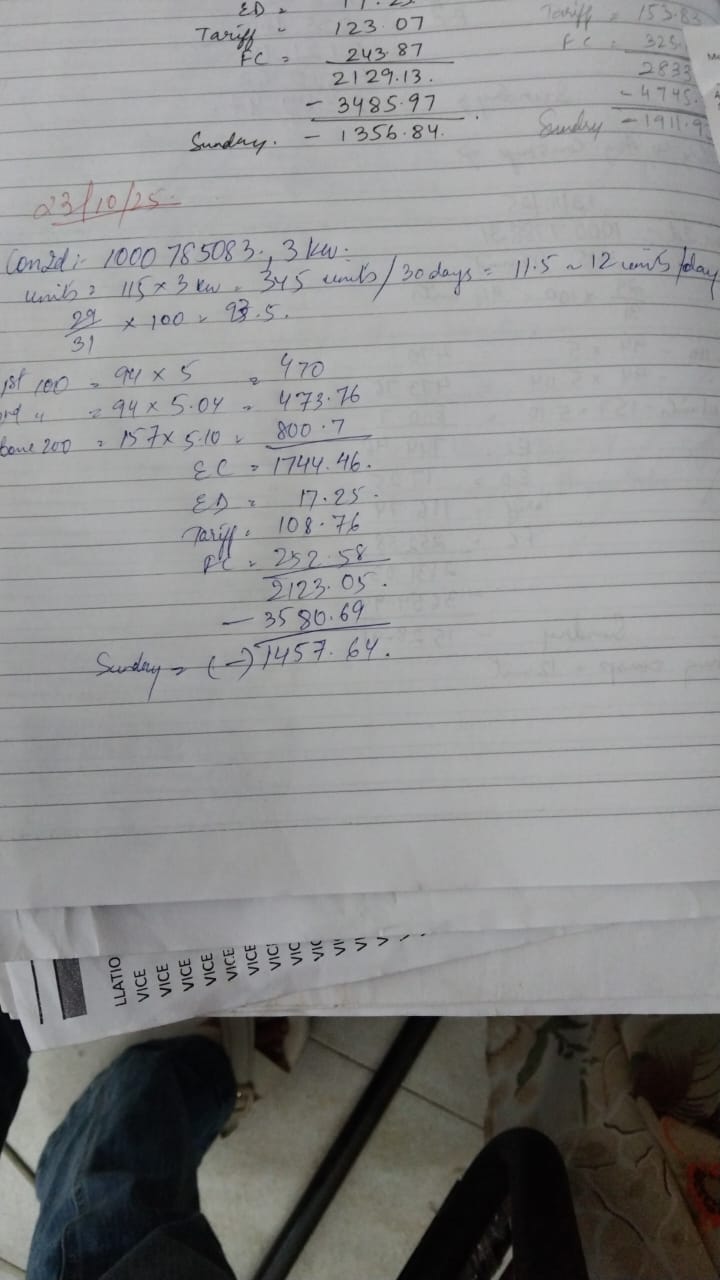 ED =
Tariff = 123.07
FC = 243.87
2129.13.
- 3485.97
Sunday. - 1356.84.
Tariff = 153.83
FC =
2833
- 4745.
Sundry - 1911.9
23/10/25.
Con Id:- 1000785083., 3 kw.
units = 115 x 3 kw = 345 units / 30 days = 11.5 ~ 12 units/day
29/31 x 100 = 93.5.
1st 100 = 94 x 5 = 470
" = 94 x 5.04 = 473.76
200 = 157 x 5.10 = 800.7
EC = 1744.46.
ED = 17.25.
Tariff = 108.76
FC = 252.58
2123.05.
- 3580.69
Sunday = (-) 1457.64.
LLATIO
VICE
VICE
VICE
VICE
VICE
VICE
VICE
VIC
VIC